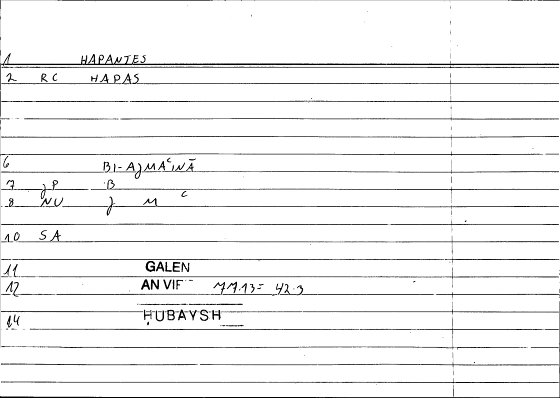 1 HAPANTES
2 RC HAPAS
6 BI-AJMAʿINĀ
7 JP B
8 NU J M ʿ
10 SA
11 GALEN
12 AN VIF 77.13 = 42.3
14 ḤUBAYSH